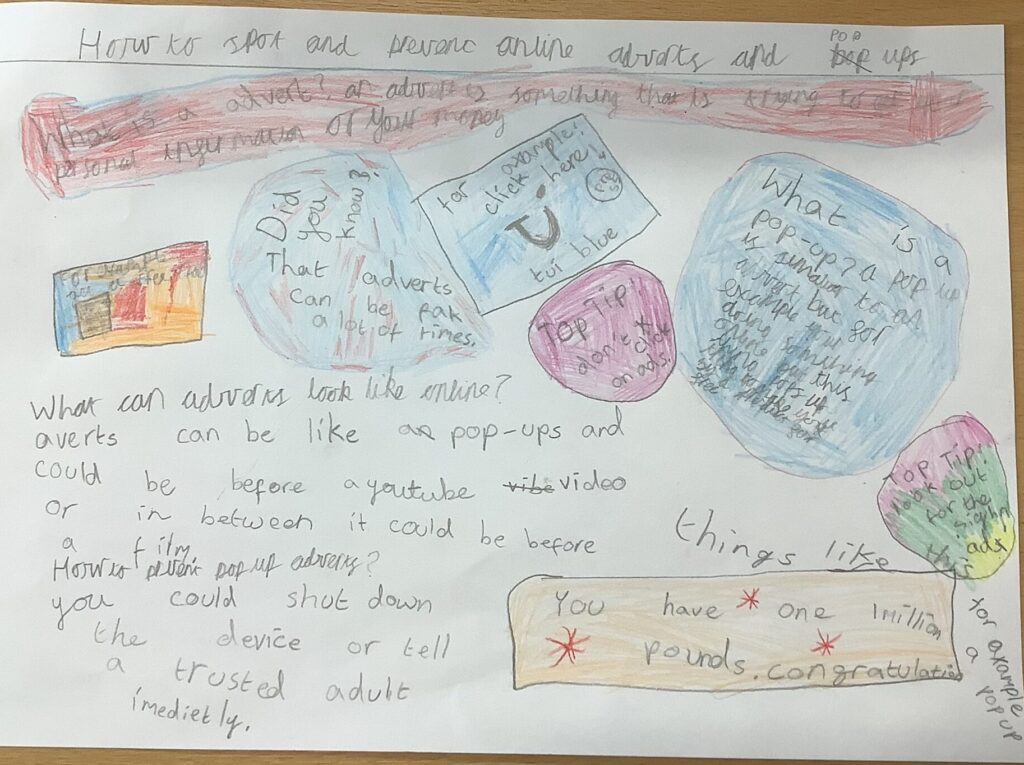 How to spot and prevent online adverts and pop ups
What is a advert? an advert is something that is trying to
personal infurmation or your money
Did
you
know?
That adverts
can be fak
a lot of times.
for example!
click here!
tui blue
Top Tip!
don't click
on ads.
What is a
pop-up? a pop up
is simular to an
advert but for
example
doing something
online
pops up
For
a free
What can adverts look like online?
averts can be like a pop-ups and
could be before a youtube video
or in between it could be before
a film
How to prevent pop up adverts?
you could shut down
the device or tell
a trusted adult
imedietly.
Top Tip!
look out
for the
sighn
ads!
things like this
You have one 1million
pounds. congratulatio
for example
a pop up